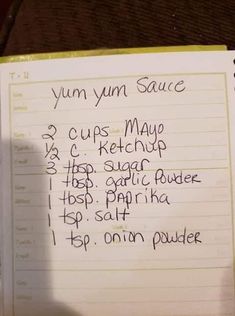 T - U
Yum Yum Sauce
2 cups Mayo
1/2 c. Ketchup
3 tbsp. sugar
1 tbsp. garlic Powder
1 tbsp. Paprika
1 tsp. salt
1 tsp. onion powder